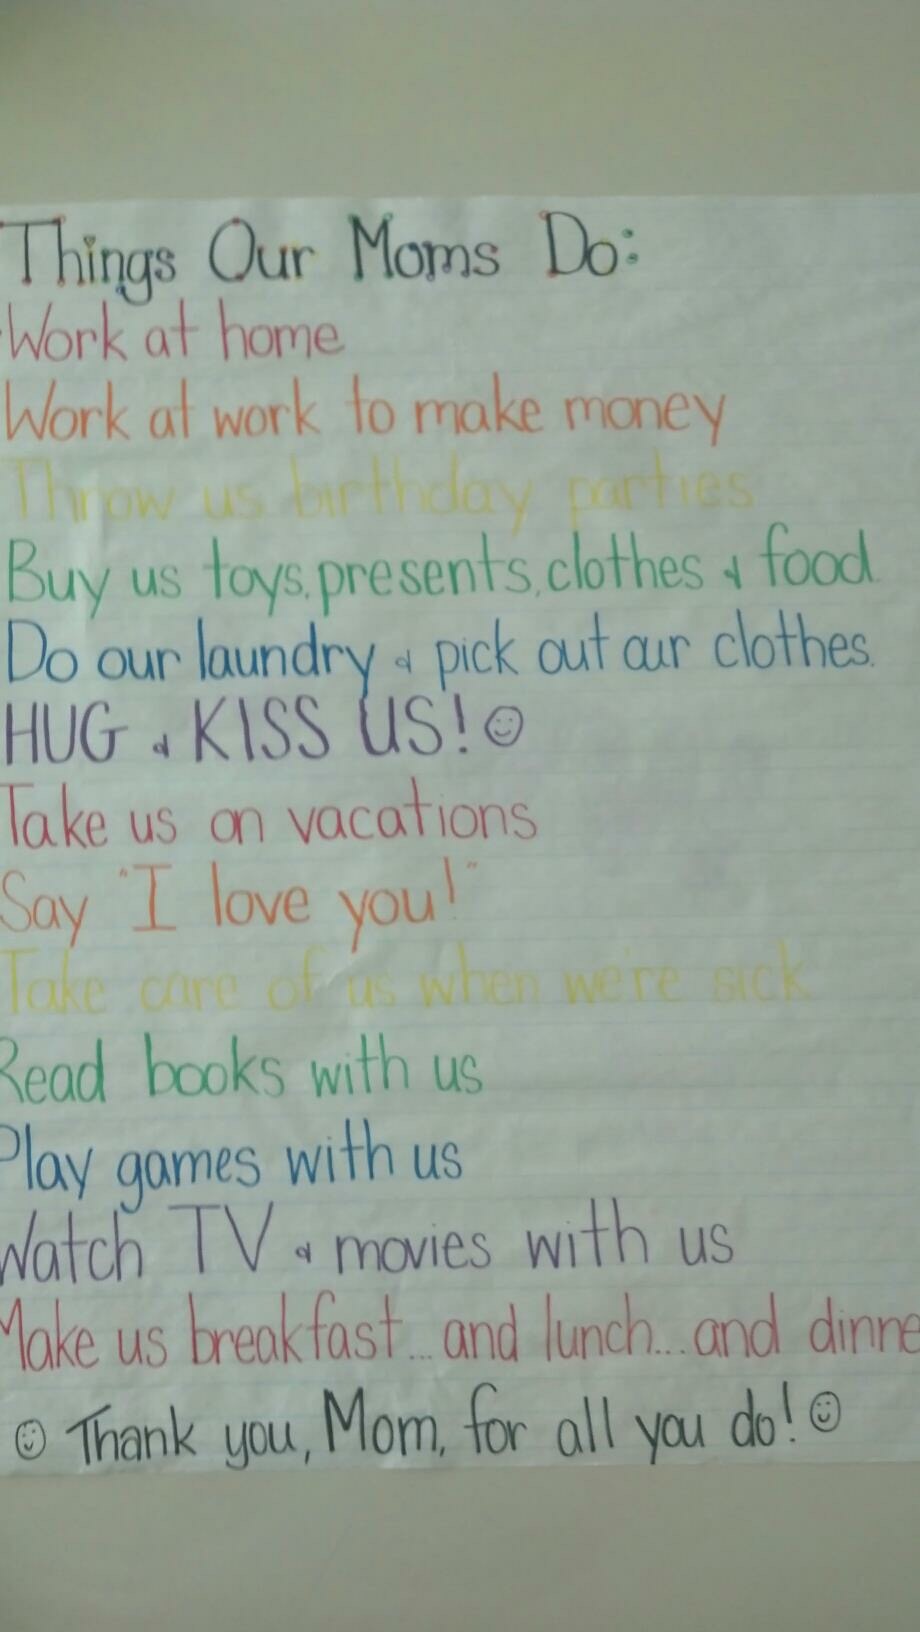 Things Our Moms Do:
Work at home
Work at work to make money
Throw us birthday parties
Buy us toys, presents, clothes & food.
Do our laundry & pick out our clothes.
HUG & KISS US! ☺
Take us on vacations
Say "I love you!"
Take care of us when we're sick
Read books with us
Play games with us
Watch TV & movies with us
Make us breakfast...and lunch...and dinne
☺ Thank you, Mom, for all you do! ☺